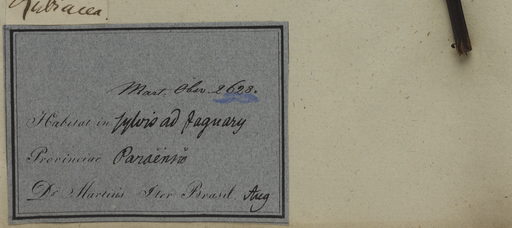 Rubiacea.
Mart. Obs. 2628.
Habitat in sylvis ad Jaguary
Provinciae Paraënsis
Dr. Martius Iter Brasil. Aug